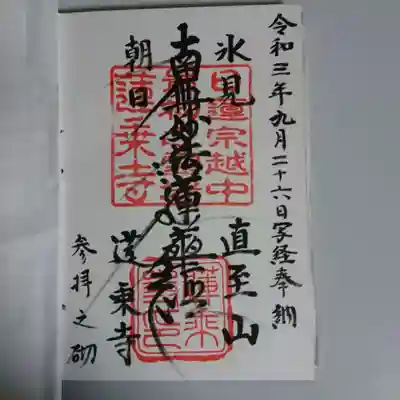 令和三年九月二十六日写経奉納
氷見
直至山
南無妙法蓮華経
朝日
蓮乗寺
参拝之砌
日蓮宗越中
蓮乗寺